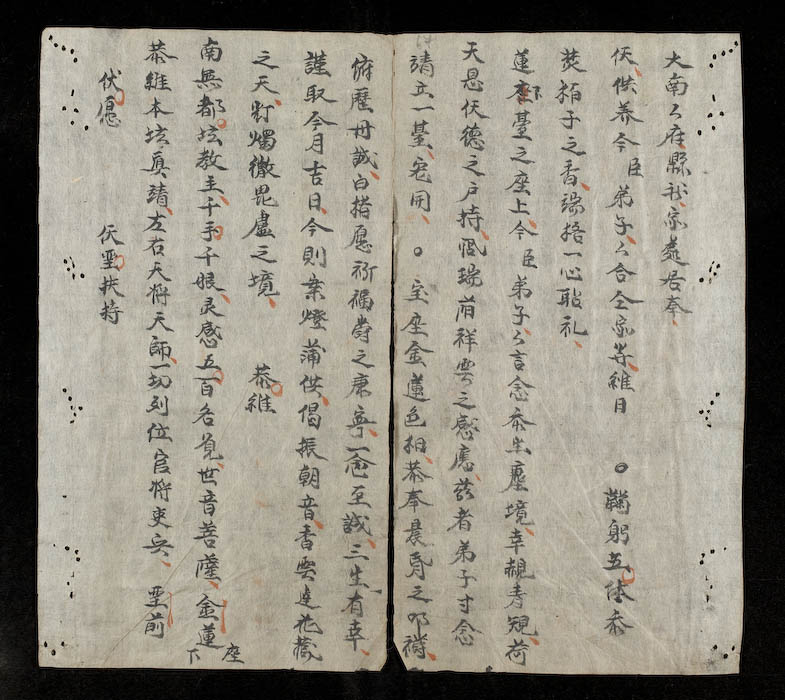 大南么府縣社家處居奉
伏供养今臣弟子么合仝家等維日 ○鞠躬五体叅
焚栢子之香端捂一心敬礼
蓮座下臺之座上今臣弟子么言念叅出塵境幸覩寿規荷
天恩伏德之户持瑞蔭祥雲之感應兹者弟子寸念
請立一基宛開 ○宝座金蓮色相恭奉晨昏之叩禱
俯歷丹誠白搭愿祈福壽之康寧一念至誠三生有幸
謹取今月吉日今則業燈蒲供偈振朝音香雲達花藏
之天灯燭徹毘盧之境 恭維
南無都坛教主千手千眼灵感五百名覓世音菩薩金蓮座下
恭維本坛真靖左右天將天師一切列位官將吏兵 聖前
伏愿 伏聖扶持